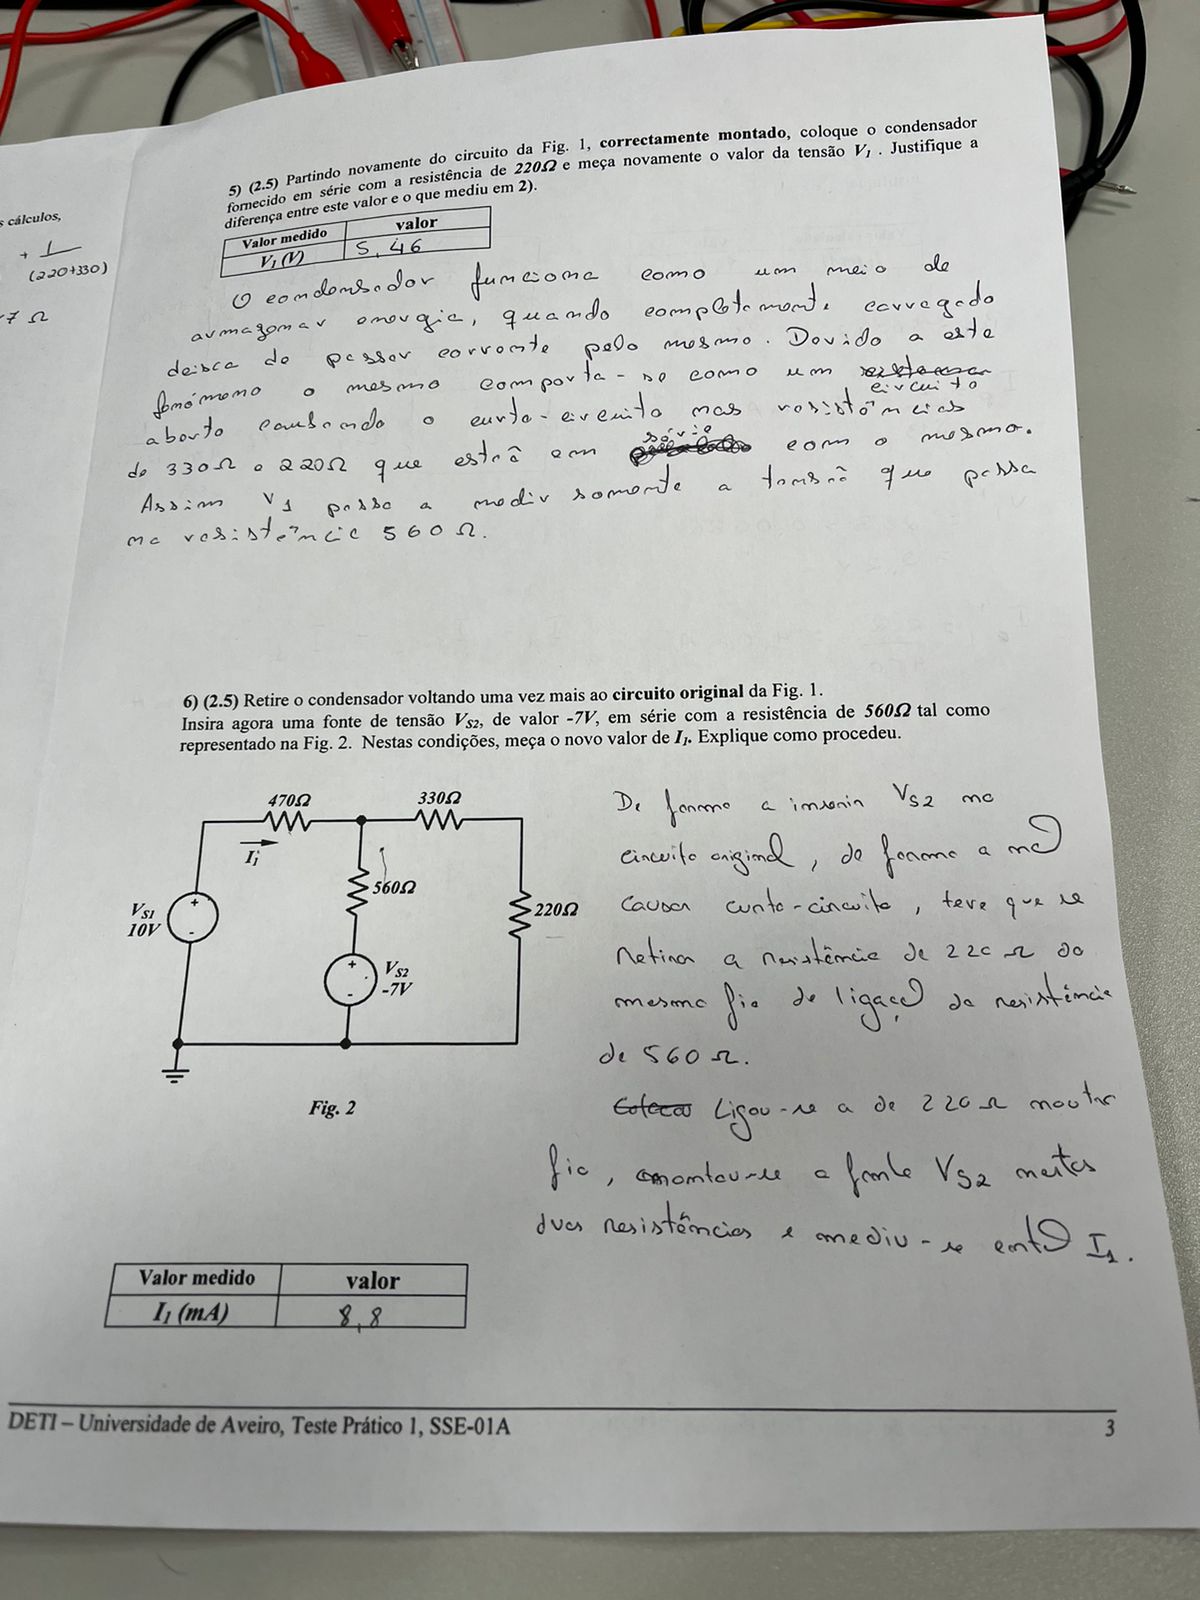 5) (2.5) Partindo novamente do circuito da Fig. 1, correctamente montado, coloque o condensador
fornecido em série com a resistência de 220Ω e meça novamente o valor da tensão V1 . Justifique a
diferença entre este valor e o que mediu em 2).
s cálculos,
Valor medido valor
V1 (V) 5,46
+ 1
(220+330)
7 Ω
O condensador funciona como um meio de
armazenar energia, quando completamente carregado
deixa de passar corrente pelo mesmo. Devido a este
fenómeno o mesmo comporta-se como um
circuito
aberto causando o curto-circuito nas resistências
série
de 330Ω e 220Ω que estão em com o mesmo.
Assim V1 passa a medir somente a tensão que passa
na resistência 560Ω.
6) (2.5) Retire o condensador voltando uma vez mais ao circuito original da Fig. 1.
Insira agora uma fonte de tensão VS2, de valor -7V, em série com a resistência de 560Ω tal como
representado na Fig. 2. Nestas condições, meça o novo valor de I1. Explique como procedeu.
470Ω 330Ω
I1
560Ω
220Ω
VS1
10V
+
-
+
-
VS2
-7V
Fig. 2
De forma a inserir VS2 no
circuito original, de forma a não
causar curto-circuito, teve que se
retirar a resistência de 220 Ω do
mesmo fio de ligação da resistência
de 560 Ω.
Coloca Ligou-se a de 220 Ω noutro
fio, montou-se a fonte VS2 nestas
duas resistências e mediu-se então I1.
Valor medido valor
I1 (mA) 8,8
DETI – Universidade de Aveiro, Teste Prático 1, SSE-01A 3